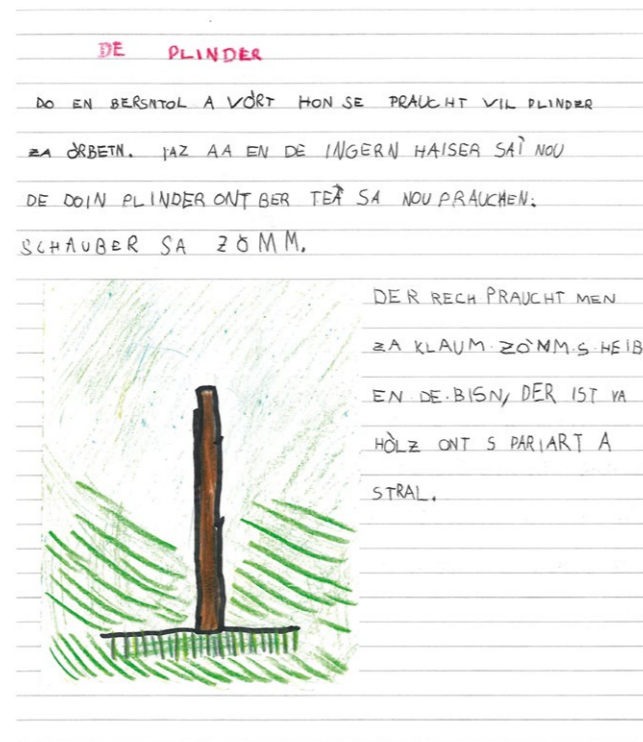 DE PLINDER
DO EN BERSNTOL A VÒRT HON SE PRAUCHT VIL PLINDER
ZA ÒRBETN. JAZ AA EN DE INGERN HAISER SAÌ NOU
DE DOIN PLINDER ONT BER TEÀ SA NOU PRAUCHEN.
SCHAUBER SA ZÒMM.
DER RECH PRAUCHT MEN
ZA KLAUM ZÒMM S HEIB
EN DE BISN, DER IST VA
HÒLZ ONT S PARIART A
STRAL.